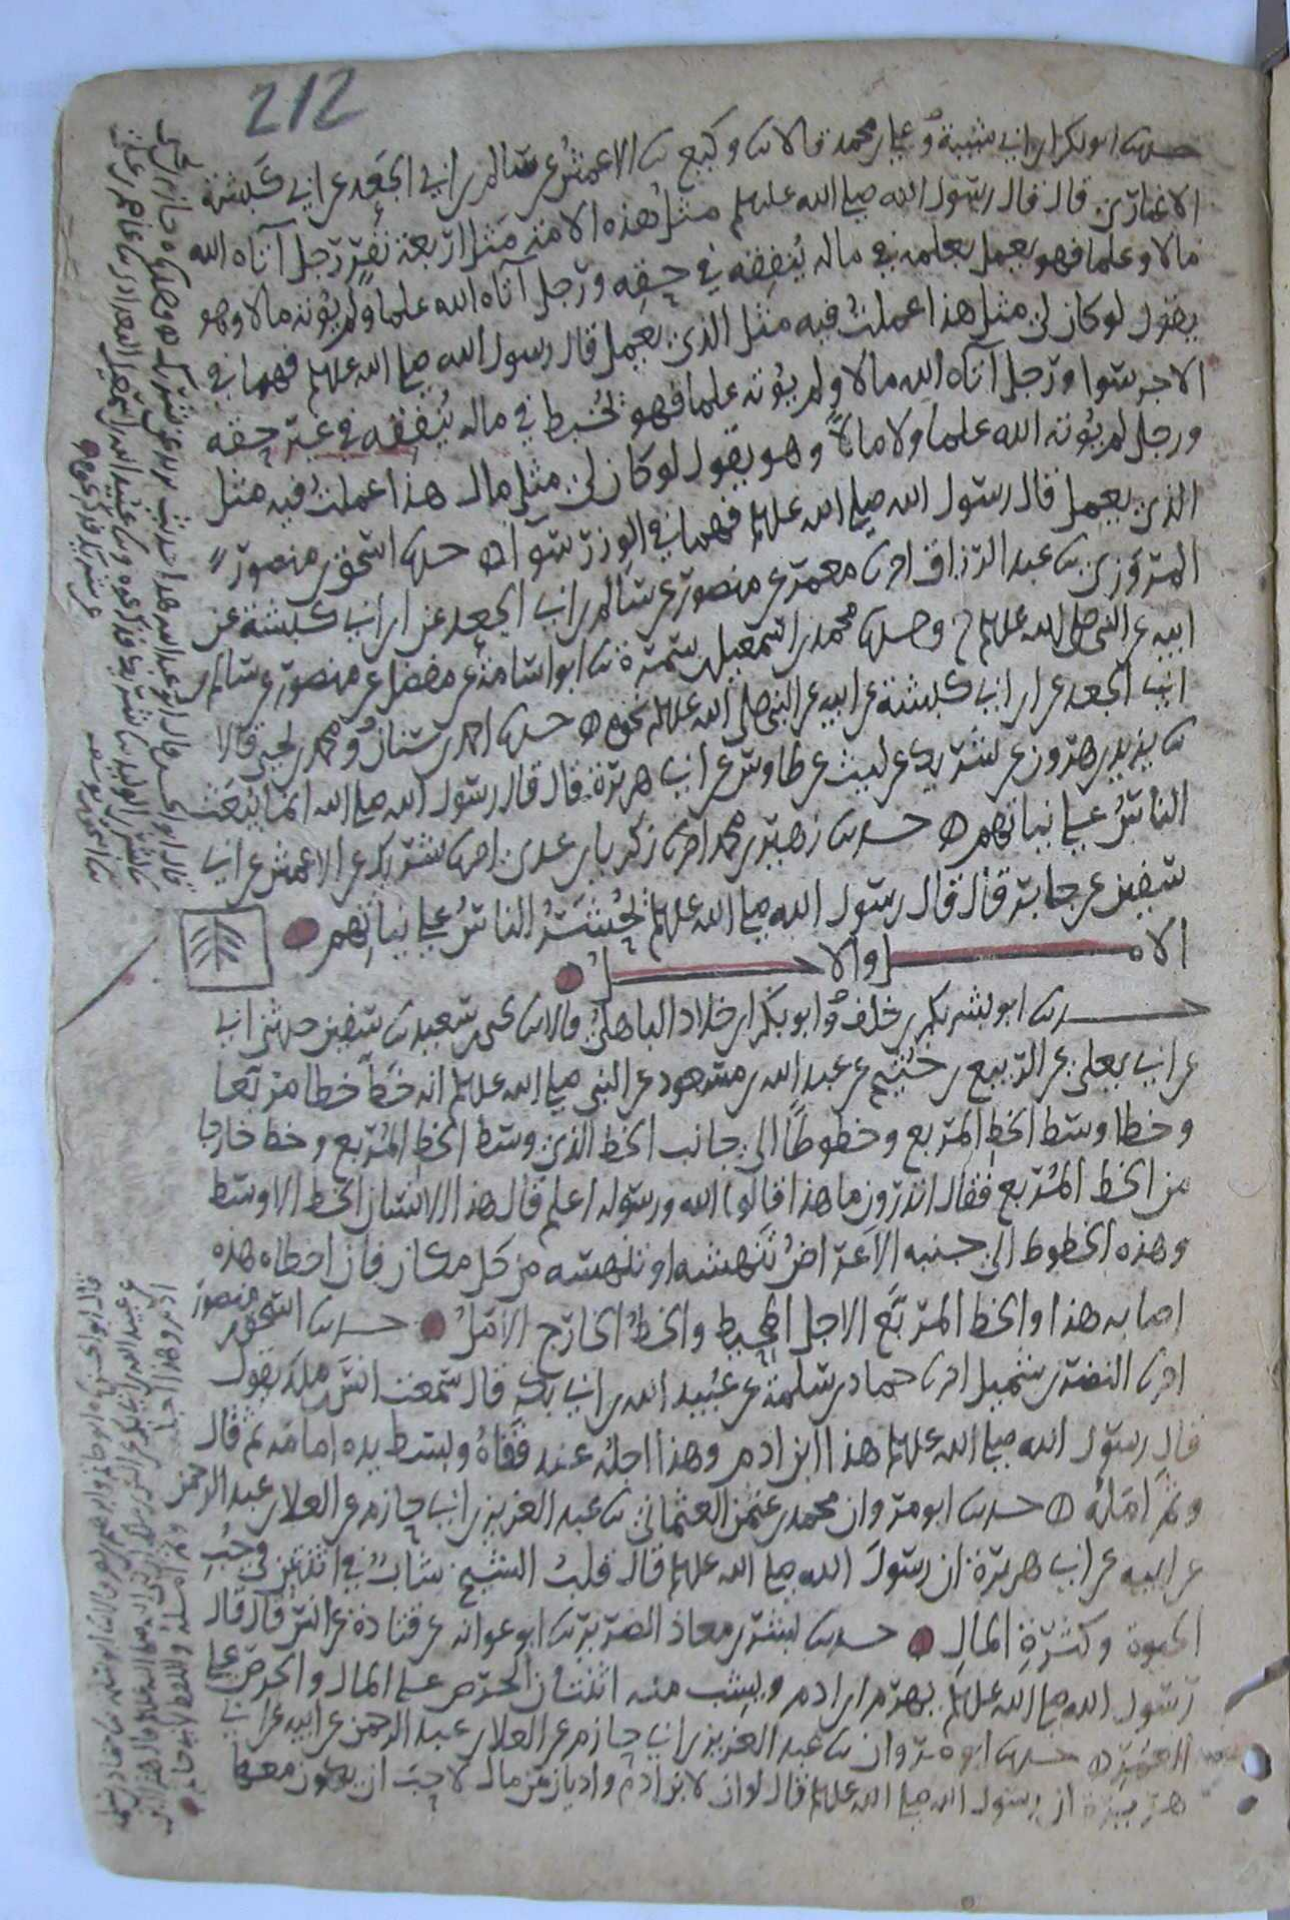 212
حدثنا ابو بكر بن ابي شيبة وعلي بن محمد قالا ثنا وكيع ثنا الاعمش عن سالم بن ابي الجعد عن ابي كبشة
الانماري قال قال رسول الله صلى الله عليه وسلم مثل هذه الامة مثل اربعة نفر رجل آتاه الله
مالا وعلما فهو يعمل بعلمه في ماله ينفقه في حقه ورجل آتاه الله علما ولم يؤته مالا وهو
يقول لو كان لي مثل هذا عملت فيه مثل الذي يعمل قال رسول الله صلى الله عليه وسلم فهما في
الاجر سوا ورجل آتاه الله مالا ولم يؤته علما فهو يخبط في ماله ينفقه في غير حقه
ورجل لم يؤته الله علما ولا مالا وهو يقول لو كان لي مثل مال هذا عملت فيه مثل
الذي يعمل قال رسول الله صلى الله عليه وسلم فهما في الوزر سوا حدثنا اسحق بن منصور
المروزي ثنا عبد الرزاق اخبرنا معمر عن منصور عن سالم بن ابي الجعد عن ابن ابي كبشة عن
ابيه عن النبي صلى الله عليه وسلم ح وحدثنا محمد بن اسمعيل بن سمرة ثنا ابو اسامة عن مفضل عن منصور عن سالم بن
ابي الجعد عن ابن ابي كبشة عن ابيه عن النبي صلى الله عليه وسلم نحوه حدثنا احمد بن سنان ومحمد بن يحيى قالا
ثنا يزيد بن هرون عن شريك عن ليث عن طاوس عن ابي هريرة قال قال رسول الله صلى الله انما يبعث
الناس على نياتهم حدثنا زهير بن محمد اخبرنا زكريا بن عدي اخبرنا شريك عن الاعمش عن ابي
سفين عن جابر قال قال رسول الله صلى الله عليه وسلم يحشر الناس على نياتهم
الامل والاجل
حدثنا ابو بشر بكر بن خلف وابو بكر بن خلاد الباهلي قالا ثنا يحيى بن سعيد ثنا سفين حدثني ابي
عن ابي يعلى عن الربيع بن خثيم عن عبد الله بن مسعود عن النبي صلى الله عليه وسلم انه خط خطا مربعا
وخطا وسط الخط المربع وخطوطا الى جانب الخط الذي وسط الخط المربع وخط خارجا
من الخط المربع فقال اتدرون ما هذا قالوا الله ورسوله اعلم قال هذا الانسان الخط الاوسط
وهذه الخطوط الى جنبه الاعراض تنهشه او تنهسه من كل مكان فان اخطاه هذه
اصابه هذا والخط المربع الاجل المحيط والخط الخارج الامل حدثنا اسحق بن منصور
اخبرنا النضر بن شميل اخبرنا حماد بن سلمة عن عبيد الله بن ابي بكر قال سمعت انس بن ملك يقول
قال رسول الله صلى الله عليه وسلم هذا ابن ادم وهذا اجله عند قفاه وبسط يده امامه ثم قال
وثم امله حدثنا ابو مروان محمد بن عثمن العثماني ثنا عبد العزيز بن ابي حازم عن العلا بن عبد الرحمن
عن ابيه عن ابي هريرة ان رسول الله صلى الله عليه وسلم قال قلب الشيخ شاب في اثنتين في حب
الحيوة وكثرة المال حدثنا بشر بن معاذ الضرير ثنا ابو عوانة عن قتادة عن انس قال قال
رسول الله صلى الله عليه وسلم يهرم ابن ادم ويشب منه اثنتان الحرص على المال والحرص على
العمر حدثنا ابو مروان ثنا عبد العزيز بن ابي حازم عن العلا بن عبد الرحمن عن ابيه عن ابي
هريرة ان رسول الله صلى الله عليه وسلم قال لو ان لابن ادم واديان من مال لاحب ان يكون معهما